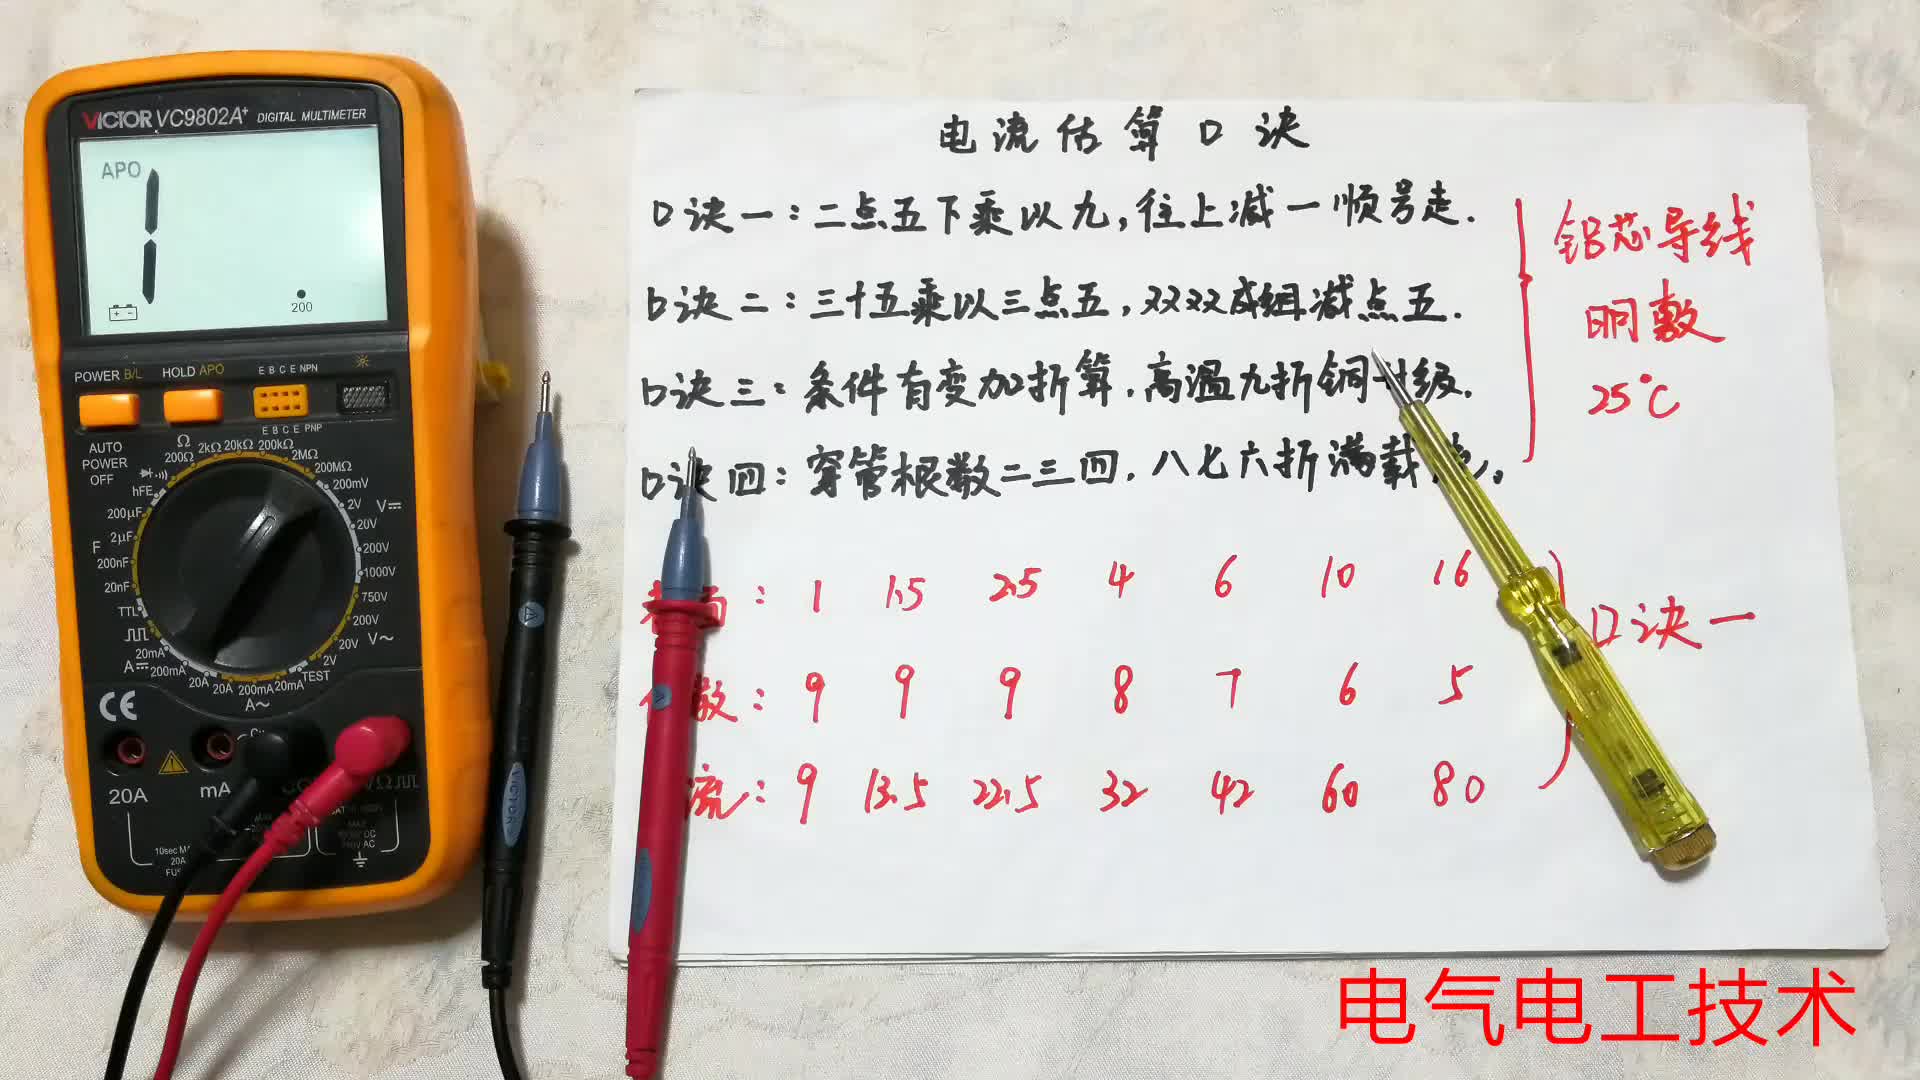 电流估算口诀
口诀一：二点五下乘以九，往上减一顺号走.
口诀二：三十五乘以三点五，双双成组减点五.
口诀三：条件有变加折算，高温九折铜升级.
口诀四：穿管根数二三四，八七六折满载
铝芯导线
明敷
25℃
： 1 1.5 2.5 4 6 10 16
数： 9 9 9 8 7 6 5
流： 9 13.5 22.5 32 42 60 80
口诀一
电气电工技术
VICTOR VC9802A+ DIGITAL MULTIMETER
APO
1
200
POWER B/L HOLD APO
E B C E NPN
E B C E PNP
AUTO POWER OFF
Ω
200Ω 2kΩ 20kΩ 200kΩ 2MΩ 200MΩ
200mV 2V 20V 200V 1000V
V
750V 200V 20V 2V
V~
TEST
20mA 200mA 20A
A~
20A 200mA 20mA
A
TTL
20nF 200nF 2μF 200μF
F
hFE
CE
20A mA
10sec
20A
VICTOR